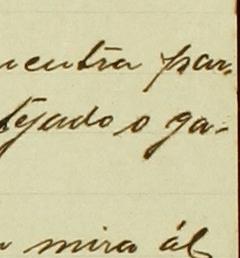 ncuentra par-
tejado o ga-
mira ál